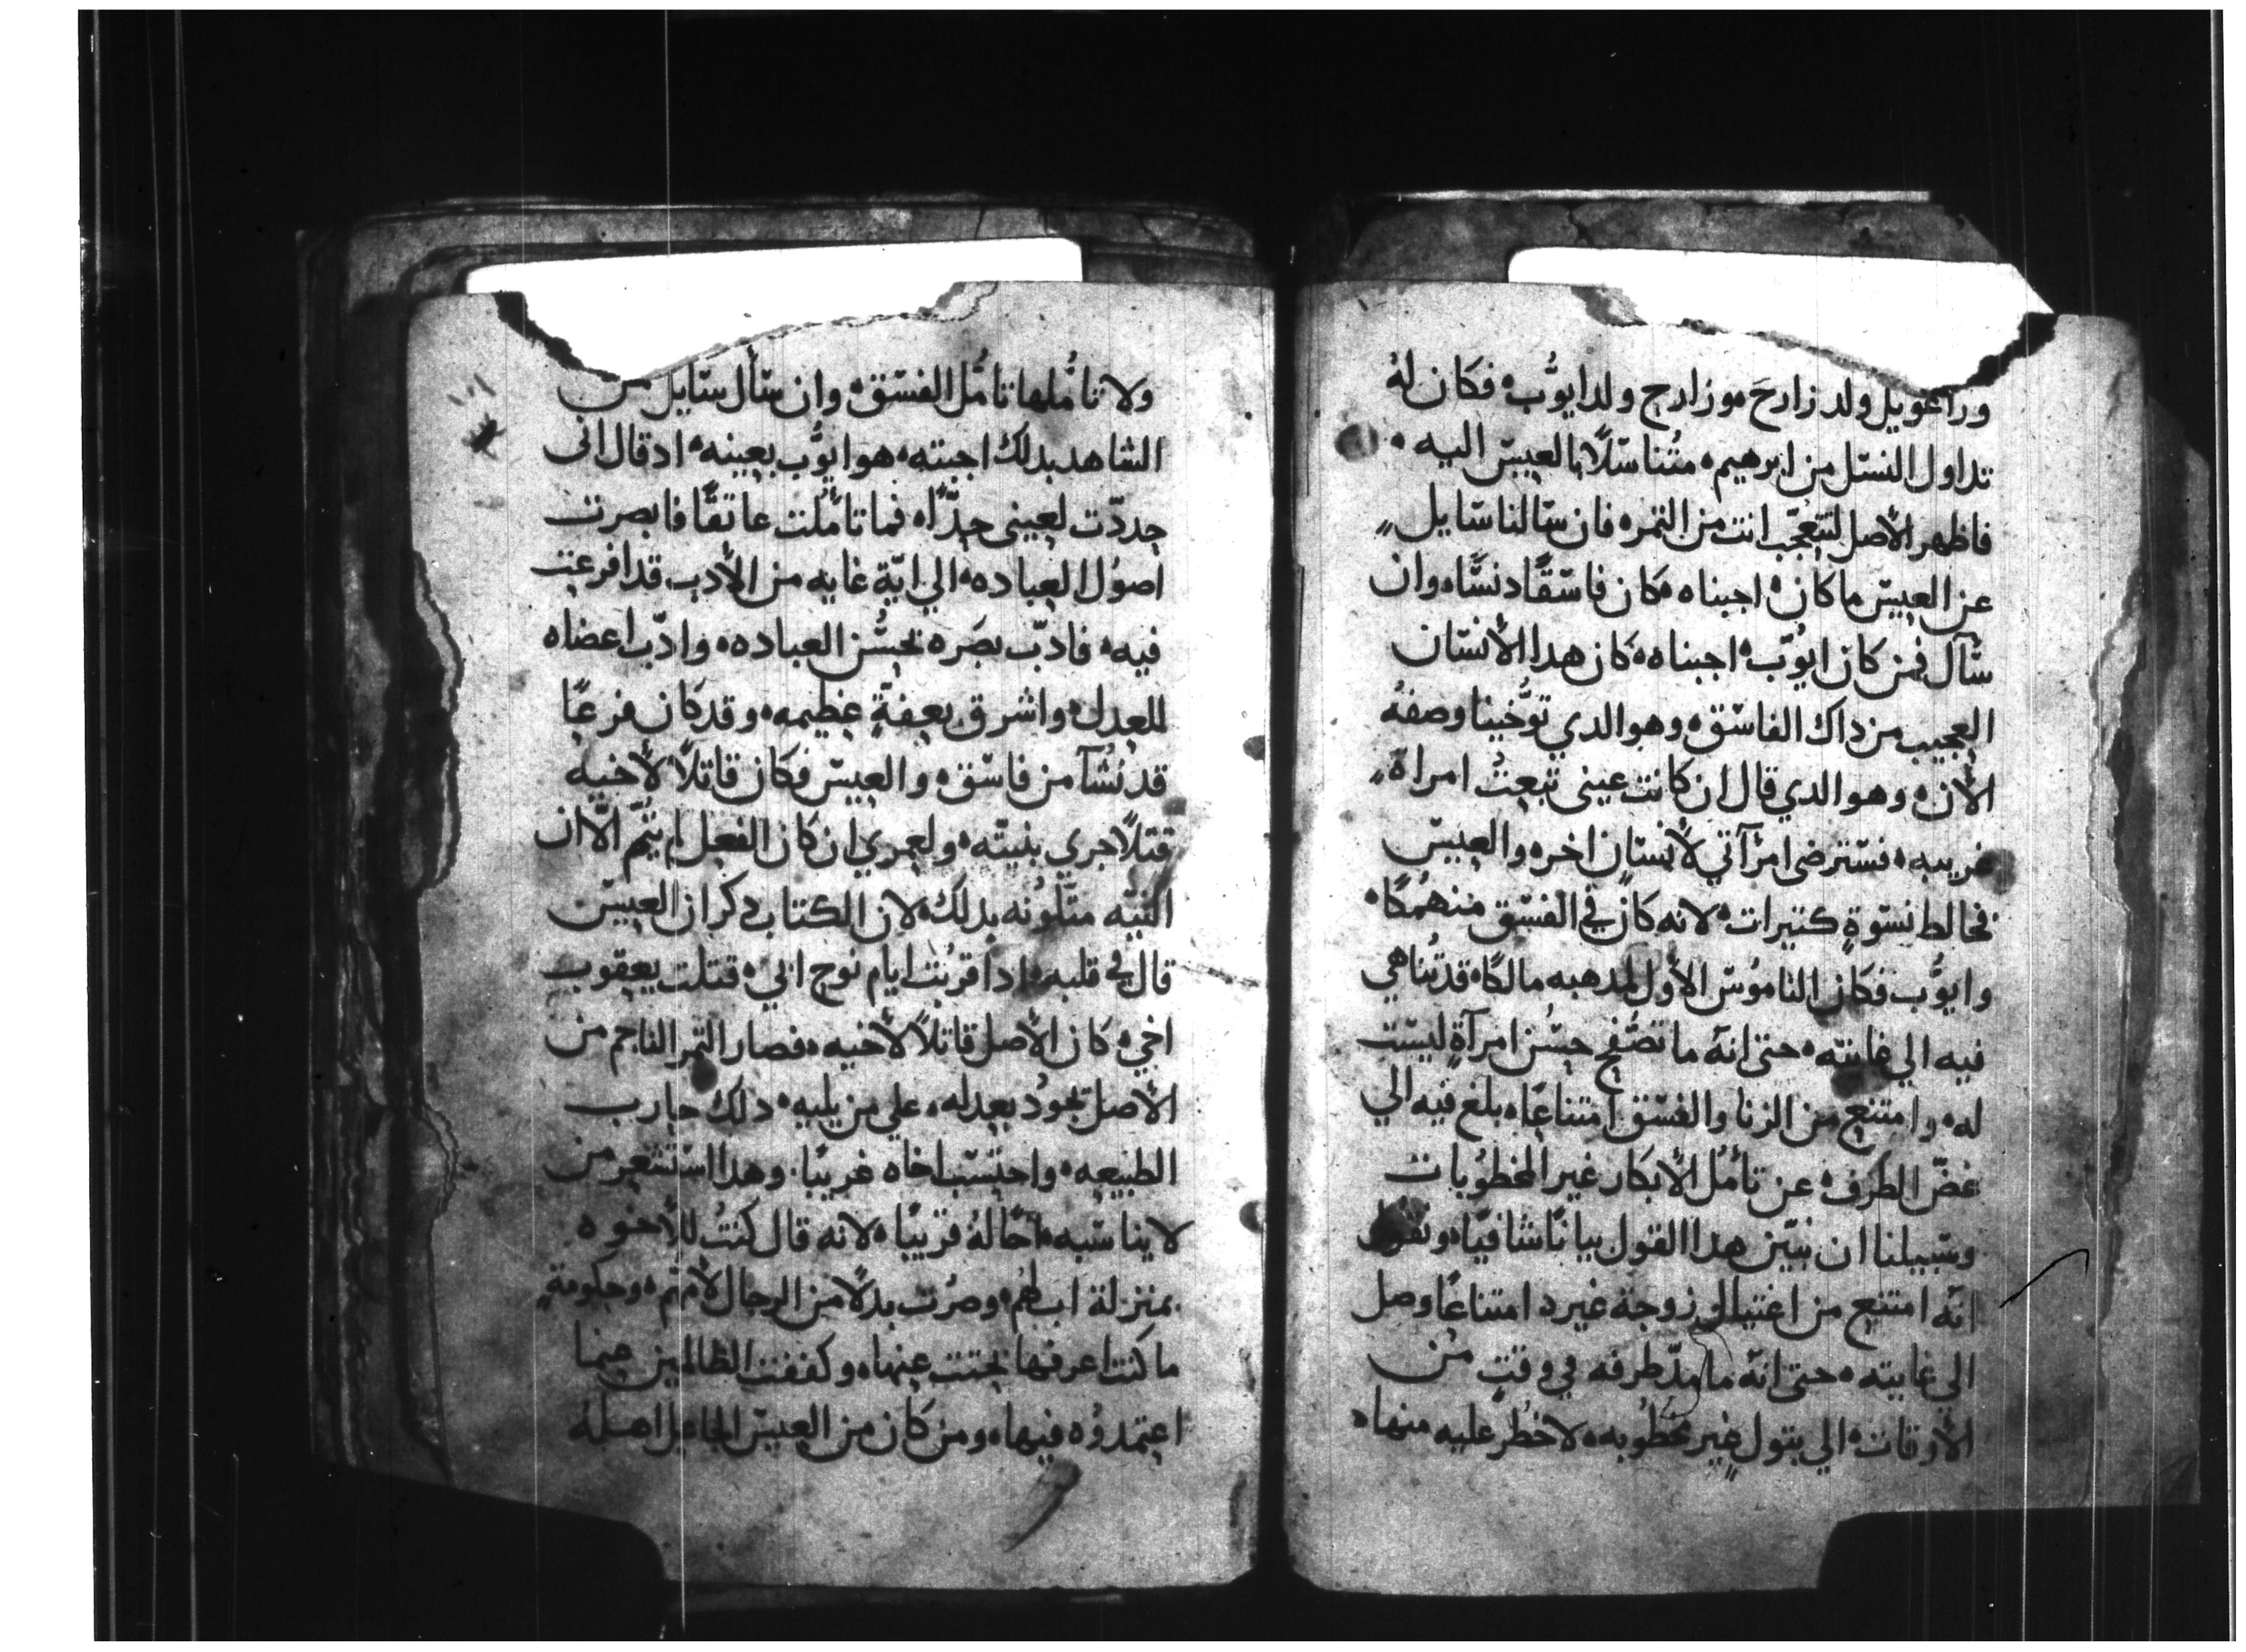 وراعويل ولد زارحَ ه وزارح ولد ايوُّب ه فكان لهُ
تداول النسّل من ابرهيم ه متُناسّلاً بالعيسّ اليه ه
فاظهر الأصل لتتعجّب انت من التمره فان سّالنا سّايل
عن العيسّ ما كان ه اجبناه ه كان فاسّقًا دنسًّا ه وان
سّآل فمن كان ايوُّب ه اجبناه ه كان هدا الأنسّان
العجيب من داك الفاسّق ه وهو الدي توُّخينا وصفهُ
الأن ه وهو الدي قال ان كانت عيني تبعتُ امراة
غريبه ه فسّترضى امرآتي لأنسّانٍ اخر ه والعيسّ
فخالط نسّوةٍ كتيرات ه لانه كان في الفسّق منهمُكًا ه
وايوُّب فكان الناموُسّ الأول لمدهبه مالكًا ه قد تُناهي
فيه الي غايته ه حتى انهّ ما تصّفح حسُن امرآةٍ ليسّت
له ه وامتنع من الزنا والفسّق امتناعًا ه بلغ فيه الي
غضّ الطرف ه عن تأمُل الأبكار غير المخطوُبات
وسّبيلنا ان نبيّن هدا القول بيانًا شافيًا ه ونقول
انّه امتنع من اغتيال زوجة غيره امتناعًا وصل
الي غايته ه حتى انهّ ما مدّ طرفه في وقتٍ من
الأوقات ه الي بتول غير مخطوُبه ه لا خطُر عليه منها ه
ولا تامُّلها تامُّل الفسّق ه وان سّأل سّايل من
الشاهد بدلك اجبته ه هو ايوُّب بعينه ه اد قال اني
حددّت لعيني حدّاً ه فما تامُّلت عاتقًا فابصرت
اصوُل العباده ه الي ايّة غايه من الأدب قد افرعت
فيه ه فادبّ بصَره بحسُّن العباده ه وادّب اعضاه
للعدل ه واشرق بعفةٍ عظيمه ه وقد كان فرعًا
قد نُشآ من فاسّق ه والعيسّ فكان قاتلاً لأخيه
قتلاً جري بنيتّه ه ولعمري ان كان الفعل لم يتُمّ الّا ان
النيّه متّلوُنه بدلك ه لان الكتاب دكر ان العيسّ
قال في قلبه ه ادا قربُت ايام نوح ابي ه قتلت يعقوب
اخي ه كان الأصل قاتلاً لأخيه ه فصار التمر الناجم من
الأصل تجودُ بعدله ه علي من يليه ه دلك حارب
الطبيعه ه واحتسّب اخاه غريبًا ه وهدا اسّتشعر من
لا يناسّبه ه اخًا لهُ قريبًا ه لانه قال كنتُ للأخوه
بمنزلة اب لهُم ه وصرُت بدلاً من الرجال لأمتهم ه وحكومةٍ
ما كنت اعرفها بحتت عنها ه وكففت الظالمين عمّا
اعتمدوُه فيها ه ومن كان من العيسّ الجاهل اصلهُ